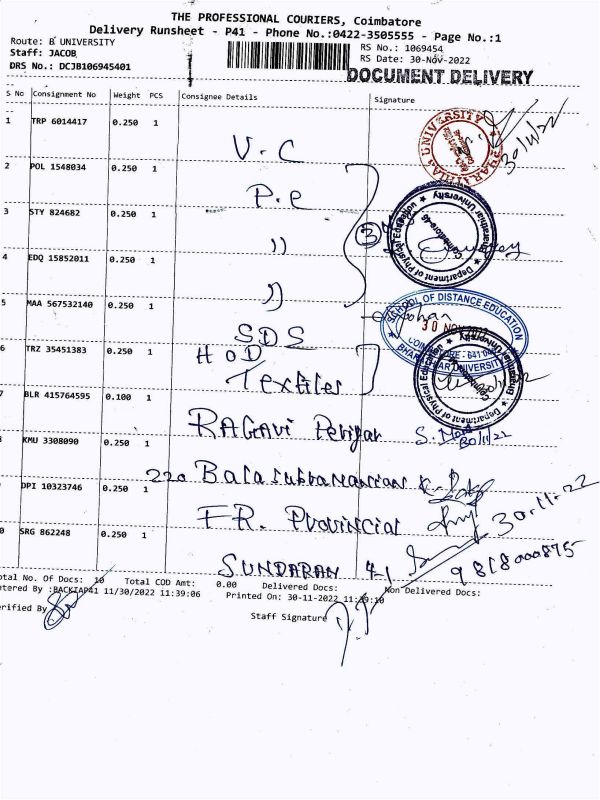 THE PROFESSIONAL COURIERS, Coimbatore
Delivery Runsheet - P41 - Phone No.:0422-3505555 - Page No.:1
Route: B UNIVERSITY
Staff: JACOB
DRS No.: DCJB106945401
RS No.: 1069454
RS Date: 30-Nov-2022
DOCUMENT DELIVERY
S No Consignment No Weight PCS Consignee Details Signature
1 TRP 6014417 0.250 1
V.C
30/11/22
2 POL 1548034 0.250 1
P.e
3 STY 824682 0.250 1
"
3
Department of Physical Education
Bharathiar University
Coimbatore-46
4 EDQ 15852011 0.250 1
"
5 MAA 567532140 0.250 1
SDS
SCHOOL OF DISTANCE EDUCATION
30 NOV 2022
BHARATHIAR UNIVERSITY
6 TRZ 35451383 0.250 1
HOD
Textiles
Department of Physical Education
Bharathiar University
7 BLR 415764595 0.100 1
RAGAVI Periyar
30/11/22
8 KMU 3308090 0.250 1
220 Balasubramanian
DPI 10323746 0.250 1
FR. Provincial
30-11-22
0 SRG 862248 0.250 1
SUNDARAN
9818000875
otal No. Of Docs: 10 Total COD Amt: 0.00 Delivered Docs: Non Delivered Docs:
ntered By :BACKIAP41 11/30/2022 11:39:06 Printed On: 30-11-2022 11:39:10
erified By
Staff Signature